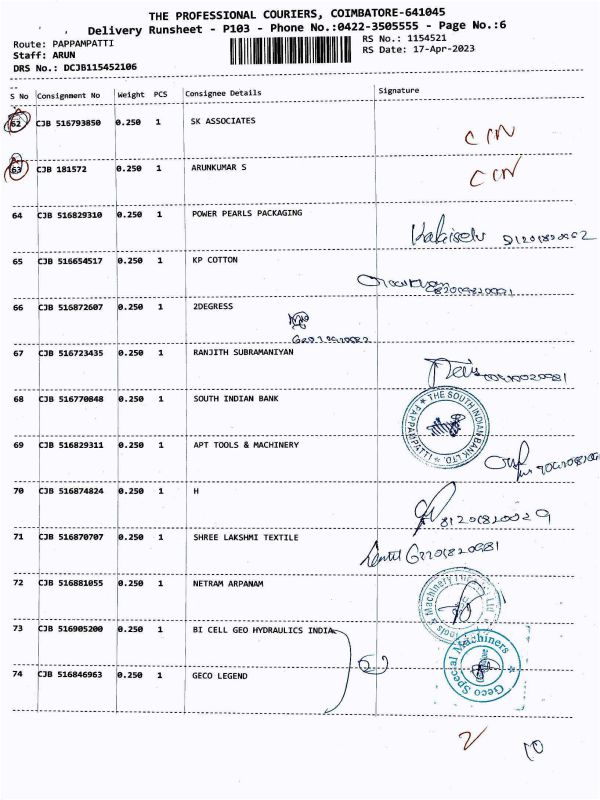 THE PROFESSIONAL COURIERS, COIMBATORE-641045
Delivery Runsheet - P103 - Phone No.:0422-3505555 - Page No.:6
Route: PAPPAMPATTI
RS No.: 1154521
Staff: ARUN
RS Date: 17-Apr-2023
DRS No.: DCJB115452106
S No Consignment No Weight PCS Consignee Details Signature
62 CJB 516793850 0.250 1 SK ASSOCIATES
CIN
63 CJB 181572 0.250 1 ARUNKUMAR S
CIN
64 CJB 516829310 0.250 1 POWER PEARLS PACKAGING
65 CJB 516654517 0.250 1 KP COTTON
66 CJB 516872607 0.250 1 2DEGRESS
67 CJB 516723435 0.250 1 RANJITH SUBRAMANIYAN
68 CJB 516770848 0.250 1 SOUTH INDIAN BANK
THE SOUTH INDIAN BANK LTD. PAPPAMPATTI
69 CJB 516829311 0.250 1 APT TOOLS & MACHINERY
70 CJB 516874824 0.250 1 H
71 CJB 516870707 0.250 1 SHREE LAKSHMI TEXTILE
72 CJB 516881055 0.250 1 NETRAM ARPANAM
73 CJB 516905200 0.250 1 BI CELL GEO HYDRAULICS INDIA
74 CJB 516846963 0.250 1 GECO LEGEND
Geco Special Machiners
2
10